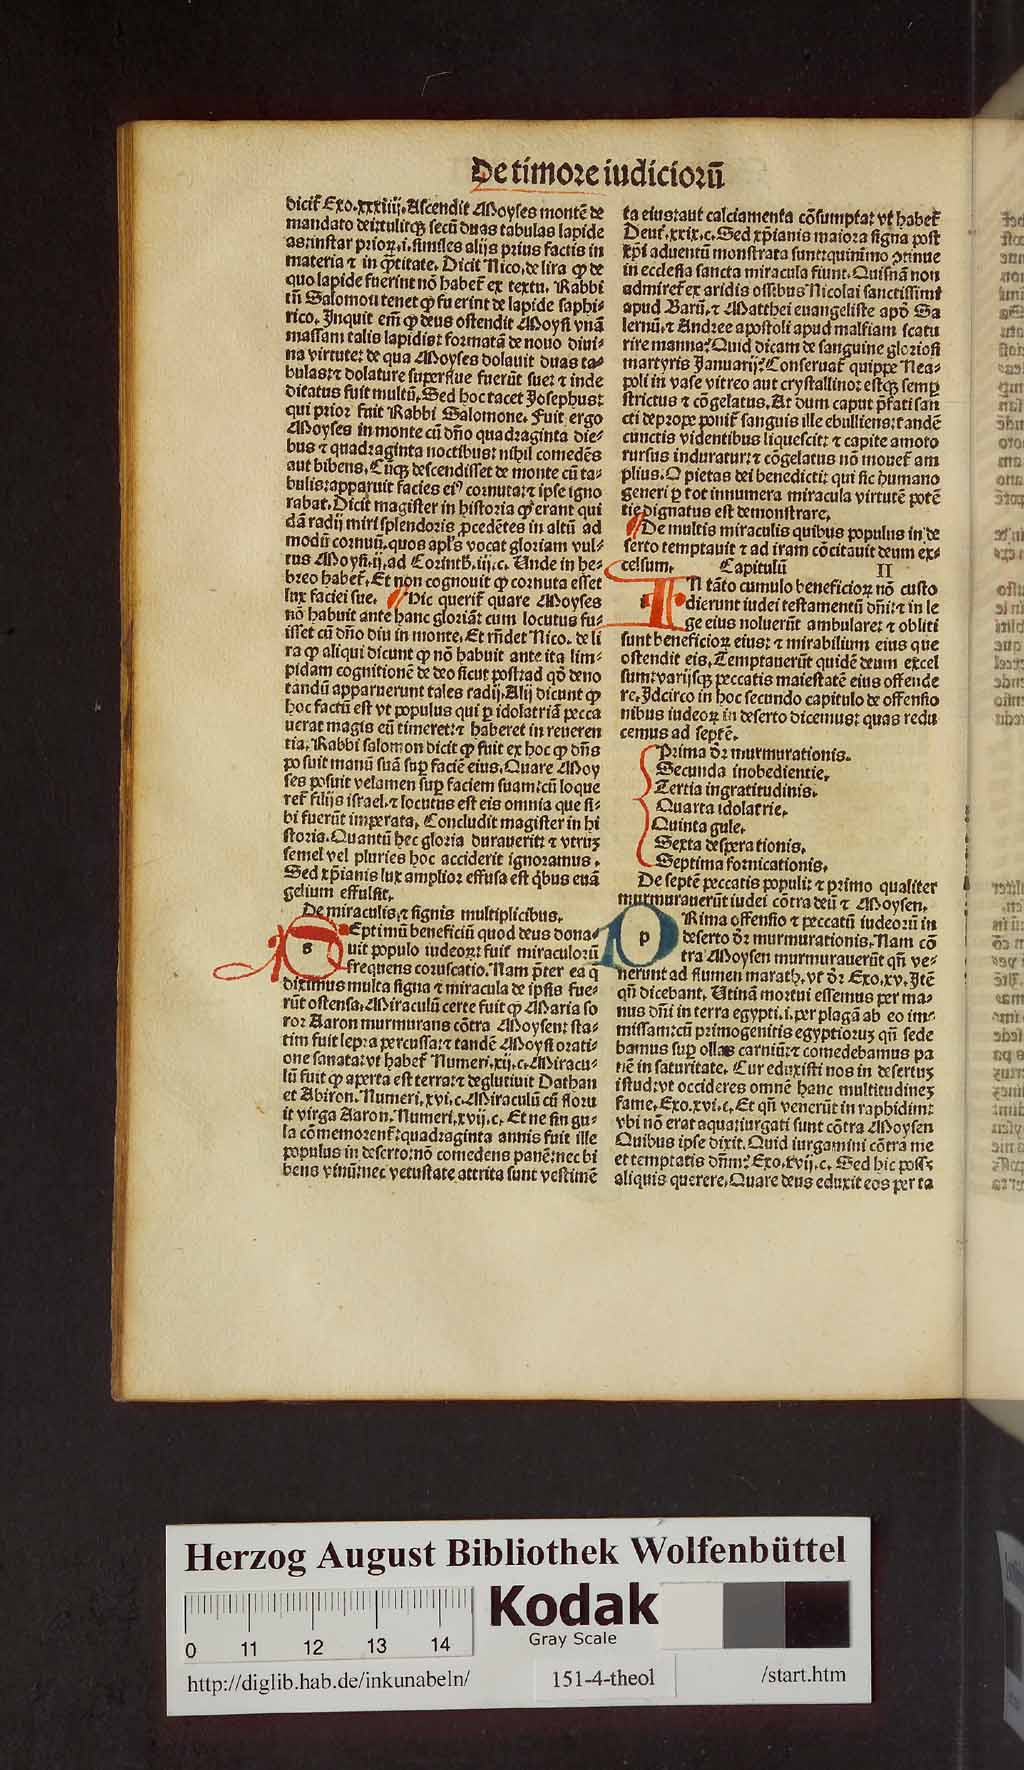 De timore iudicioꝝ
dicit᷑ Exo.xxxiiij. Ascendit Moyses montē de
mandato dei:tulitqꝫ secū duas tabulas lapide
as:instar prioꝝ.i.similes alijs prius factis in
materia ⁊ in q̄titate. Dicit Nico.de lira ꝙ de
quo lapide fuerint nō habet᷑ ex textu. Rabbi
tñ Salomon tenet ꝙ fuerint de lapide saphi⸗
rico. Inquit em̄ ꝙ deus ostendit Moysi vnā
massam talis lapidis: formatā de nouo diui⸗
na virtute: de qua Moyses dolauit duas ta⸗
bulas:⁊ dolature superflue fuerūt sue: ⁊ inde
ditatus fuit multū. Sed hoc tacet Josephus:
qui prior fuit Rabbi Salomone. Fuit ergo
Moyses in monte cū dn̄o quadraginta die⸗
bus ⁊ quadraginta noctibus: nihil comedēs
aut bibens. Cūqꝫ descendisset de monte cū ta⸗
bulis:apparuit facies eiꝰ cornuta:⁊ ipse igno
rabat. Dicit magister in historia ꝙ erant qui
dā radij miri splendoris ꝓcedētes in altū ad
modū cornuū.quos apl's vocat gloriam vul⸗
tus Moysi.ij.ad Corinth.iij.c. Unde in he⸗
breo habet᷑. Et non cognouit ꝙ cornuta esset
lux faciei sue. Hic querit᷑ quare Moyses
nō habuit ante hanc gloriā: cum locutus fu⸗
isset cū dn̄o diu in monte. Et rn̄det Nico. de li
ra ꝙ aliqui dicunt ꝙ nō habuit ante ita lim⸗
pidam cognitionē de deo sicut post:ad qd̄ deno
tandū apparuerunt tales radij. Alij dicunt ꝙ
hoc factū est vt populus qui ꝑ idolatriā pecca
uerat magis eū timeret:⁊ haberet in reueren
tia. Rabbi salomon dicit ꝙ fuit ex hoc ꝙ dn̄s
posuit manū suā sup̄ faciē eius. Quare Moy
ses posuit velamen sup̄ faciem suam:cū loque
ret᷑ filijs israel.⁊ locutus est eis omnia que si⸗
bi fuerūt imperata. Concludit magister in hi
storia. Quantū hec gloria durauerit: ⁊ vtrūꝫ
semel vel pluries hoc acciderit ignoramus.
Sed xp̄ianis lux amplior effusa est qb̄us euā
gelium effulsit.
De miraculis.⁊ signis multiplicibus.
sEptimū beneficiū quod deus dona⸗
uit populo iudeoꝝ: fuit miraculorū
frequens coruscatio. Nam p̄ter ea q̄
diximus multa signa ⁊ miracula de ipsis fue⸗
rūt ostensa. Miraculū certe fuit ꝙ Maria so
ror Aaron murmurans cōtra Moysen: sta⸗
tim fuit lepra percussa:⁊ tandē Moysi orati⸗
one sanata:vt habet᷑ Numeri.xij.c. Miracu⸗
lū fuit ꝙ aperta est terra:⁊ deglutiuit Dathan
et Abiron. Numeri.xvi.c. Miraculū cū floru
it virga Aaron. Numeri.xvij.c. Et ne singu⸗
la cōmemorent᷑:quadraginta annis fuit ille
populus in deserto:nō comedens panē:nec bi
bens vinū:nec vetustate attrita sunt vestimē
ta eius:aut calciamenta cōsumpta: vt habet᷑
Deut᷑.xxix.c. Sed xp̄ianis maiora signa post
xp̄i aduentū monstrata sunt:quinimo ꝯtinue
in ecclesia sancta miracula fiunt. Quisnā non
admiret᷑ ex aridis ossibus Nicolai sanctissimi
apud Barū.⁊ Matthei euangeliste apd̄ Sa
lernū.⁊ Andree apostoli apud malfiam scatu
rire manna? Quid dicam de sanguine gloriosi
martyris Januarij? Conseruat᷑ quippe Nea⸗
poli in vase vitreo aut crystallino: estqꝫ semꝑ
strictus ⁊ cōgelatus. At dum caput p̄fati san
cti deprope ponit᷑ sanguis ille ebulliens:tandē
cunctis videntibus liquescit: ⁊ capite amoto
rursus induratur:⁊ cōgelatus nō mouet᷑ am
plius. O pietas dei benedicti: qui sic humano
generi ꝑ tot innumera miracula virtutē potē
tie dignatus est demonstrare.
De multis miraculis quibus populus in de
serto temptauit ⁊ ad iram cōcitauit deum ex⸗
celsum. Capitulū II
iN tāto cumulo beneficioꝝ nō custo
dierunt iudei testamentū dn̄i:⁊ in le
ge eius noluerūt ambulare: ⁊ obliti
sunt beneficioꝝ eius: ⁊ mirabilium eius que
ostendit eis. Temptauerūt quidē deum excel
sum:varijsqꝫ peccatis maiestatē eius offende
re. Idcirco in hoc secundo capitulo de offensio
nibus iudeoꝝ in deserto dicemus: quas redu
cemus ad septē.
Prima dr̄ murmurationis.
Secunda inobedientie.
Tertia ingratitudinis.
Quarta idolatrie.
Quinta gule.
Sexta desperationis.
Septima fornicationis.
De septē peccatis populi: ⁊ primo qualiter
murmurauerūt iudei cōtra deū ⁊ Moysen.
pRima offensio ⁊ peccatū iudeorū in
deserto dr̄ murmurationis. Nam cō
tra Moysen murmurauerūt qn̄ ve⸗
nerunt ad flumen marath. vt dr̄ Exo.xv. Itē
qn̄ dicebant. Utinā mortui essemus per ma⸗
nus dn̄i in terra egypti.i.per plagā ab eo im⸗
missam:cū primogenitis egyptioruꝫ qn̄ sede
bamus sup̄ ollas carniū:⁊ comedebamus pa
nē in saturitate. Cur eduxisti nos in desertuꝫ
istud:vt occideres omnē hanc multitudineꝫ
fame. Exo.xvi.c. Et qn̄ venerūt in raphidim:
vbi nō erat aqua:iurgati sunt cōtra Moysen
Quibus ipse dixit. Quid iurgamini cōtra me
et temptatis dn̄m? Exo.xvij.c. Sed hic possꝫ
aliquis querere. Quare deus eduxit eos per ta
Herzog August Bibliothek Wolfenbüttel
0 11 12 13 14
Kodak
Gray Scale
http://diglib.hab.de/inkunabeln/ 151-4-theol /start.htm